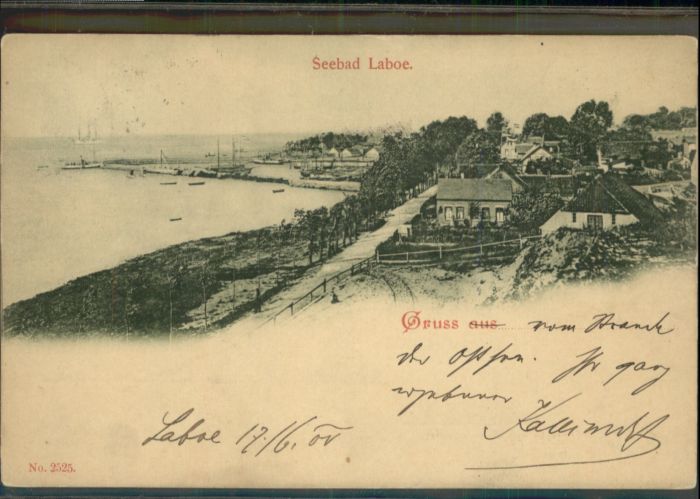 Seebad Laboe.
Gruss aus vom Strande
der Ostsee. Ihr ganz
ergebener
Laboe 17/6. 00
No. 2525.